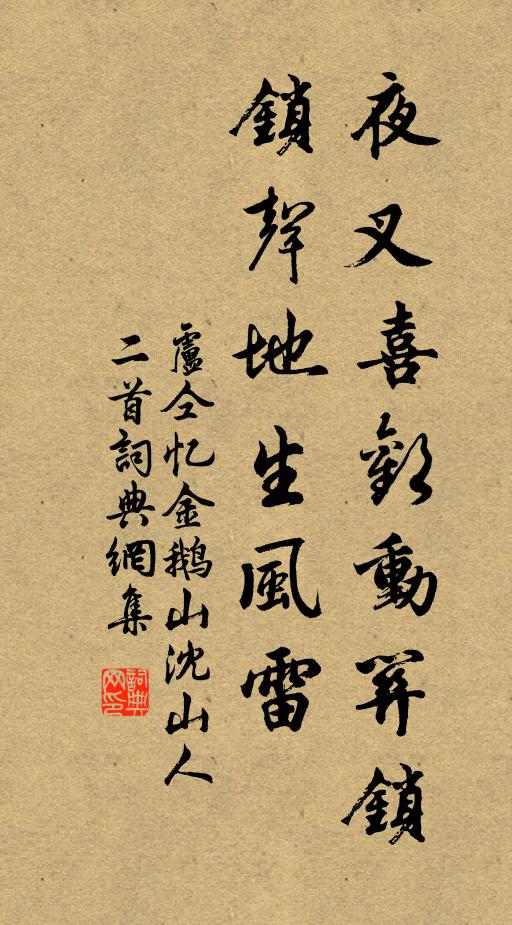 夜叉喜歡動關鎖
鎖聲地生風雷
盧仝忆金鵝山沈山人
二首詞典網集
詞典
网印